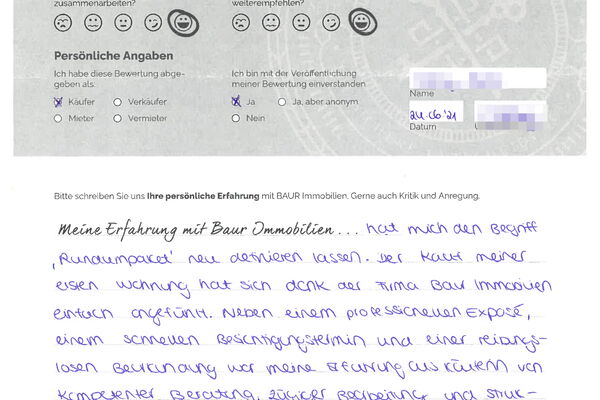 zusammenarbeiten?
weiterempfehlen?
Persönliche Angaben
Ich habe diese Bewertung abge-
geben als:
Käufer
Verkäufer
Mieter
Vermieter
Ich bin mit der Veröffentlichung
meiner Bewertung einverstanden
Ja
Ja, aber anonym
Nein
Name
24.06.'21
Datum
Bitte schreiben Sie uns Ihre persönliche Erfahrung mit BAUR Immobilien. Gerne auch Kritik und Anregung.
Meine Erfahrung mit Baur Immobilien ... hat mich den Begriff
'Rundumpaket' neu definieren lassen. Der Kauf meiner
ersten Wohnung hat sich dank der Firma Baur Immobilien
einfach angefühlt. Neben einem professionellen Exposé,
einem schnellen Besichtigungstermin und einer reibungs-
losen Beurkundung war meine Erfahrung als Käuferin von
kompetenter Beratung, zügiger Bearbeitung und struk-